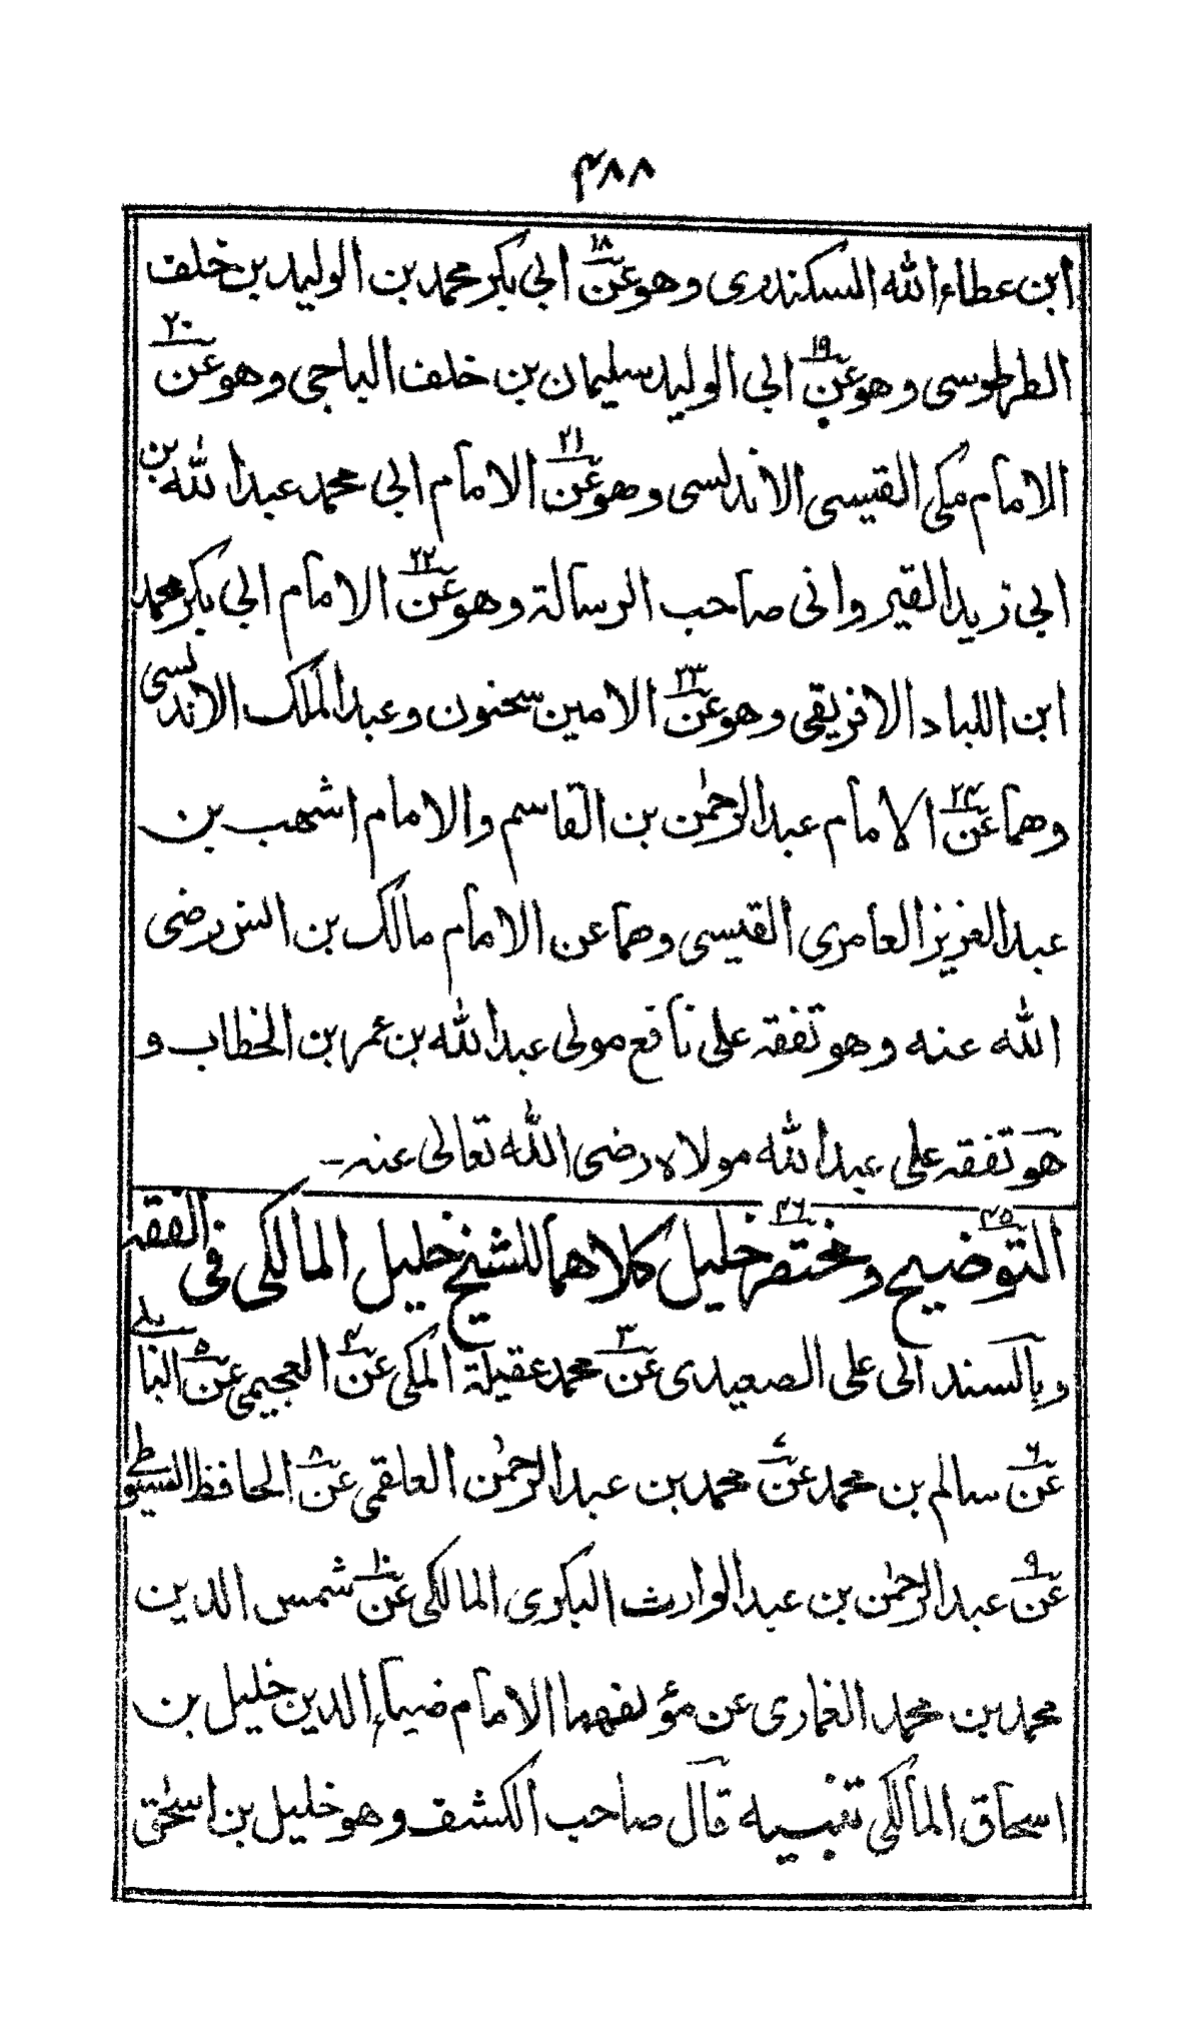 ۴۸۸
ابن عطاء الله السكندرى وهو عن١٨ ابى بكر محمد بن الوليد بن خلف
الطرطوسى وهو عن١٩ ابى الوليد سليمان بن خلف الباجى وهو عن٢٠
الامام مكى القيسى الاندلسى وهو عن٢١ الامام ابى محمد عبد الله بن
ابى زيد القيروانى صاحب الرسالة وهو عن٢٢ الامام ابى بكر محمد
ابن اللباد الافريقى وهو عن٢٣ الامين سحنون وعبد الملك الاندلسى
وهما عن٢۴ الامام عبد الرحمٰن بن القاسم والامام اشهب بن
عبد العزيز العامرى القيسى وهما عن الامام مالك بن انس رضى
الله عنه وهو تفقه على نافع مولى عبد الله بن عمر بن الخطاب و
هو تفقه على عبد الله مولاه رضى الله تعالى عنه۔
التوضيح۴۵ ومختصر۴٦ خليل كلاهما للشيخ خليل المالكى فى الفقه
وبالسند الى على الصعيدى عن٣ محمد عقيلة المكى عن۴ العجيمى عن۵ البابلى
عن٦ سالم بن محمد عن٧ محمد بن عبد الرحمٰن العلقمى عن٨ الحافظ السيوطى
عن٩ عبد الرحمٰن بن عبد الوارث البكرى المالكى عن١٠ شمس الدين
محمد بن محمد الغمارى عن مؤلفهما الامام ضياء الدين خليل بن
اسحاق المالكى تنبيه قال صاحب الكشف وهو خليل بن اسحٰق